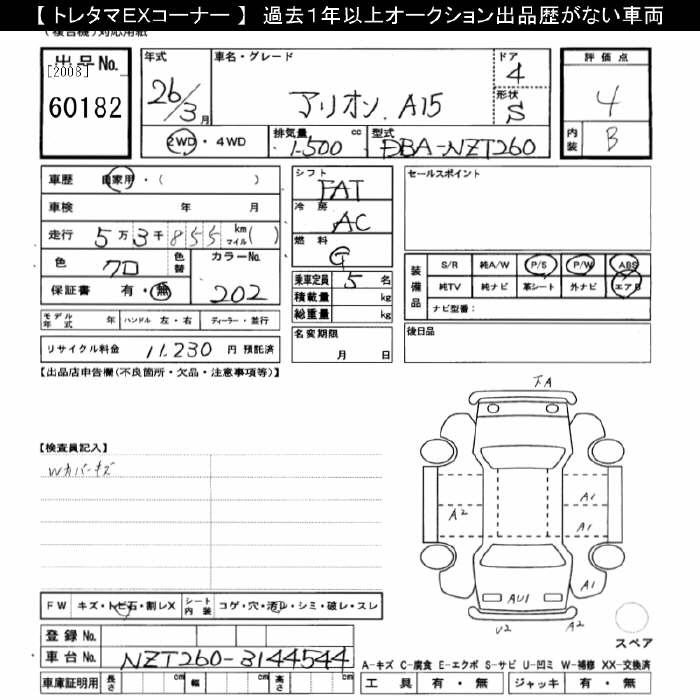 【 トレタマEXコーナー 】 過去1年以上オークション出品歴がない車両
(複合機)対応用紙
出品No.
[2008]
60182
年式
26/3月
車名・グレード
アリオン A15
ドア
4
形状
S
評価点
4
内装
B
2WD・4WD
排気量
1500 cc
型式
DBA-NZT260
車歴 自家用・( )
車検 年 月
走行 5万3千855 km マイル( )
色 クロ
色替
カラーNo.
202
保証書 有・無
モデル年式 年 ハンドル 左・右 ディーラー・並行
リサイクル料金 11,230 円 預託済
シフト
FAT
冷房
AC
燃料
G
乗車定員 5 名
積載量 kg
総重量 kg
名変期限
月 日
セールスポイント
装備品
S/R 純A/W P/S P/W ABS
純TV 純ナビ 革シート 外ナビ エアB
ナビ型番:
後日品
【出品店申告欄(不良箇所・欠品・注意事項等)】
【検査員記入】
Wカバーキズ
FW キズ・トビ石・割レX
シート内装 コゲ・穴・汚レ・シミ・破レ・スレ
登録No.
車台No. NZT260-3144544
車庫証明用 長さ cm 幅 cm 高さ cm
下A
A2
A1
A1
A1
AU1
U2
A2
スペア
A-キズ C-腐食 E-エクボ S-サビ U-凹ミ W-補修 XX-交換済
工具 有・無 ジャッキ 有・無